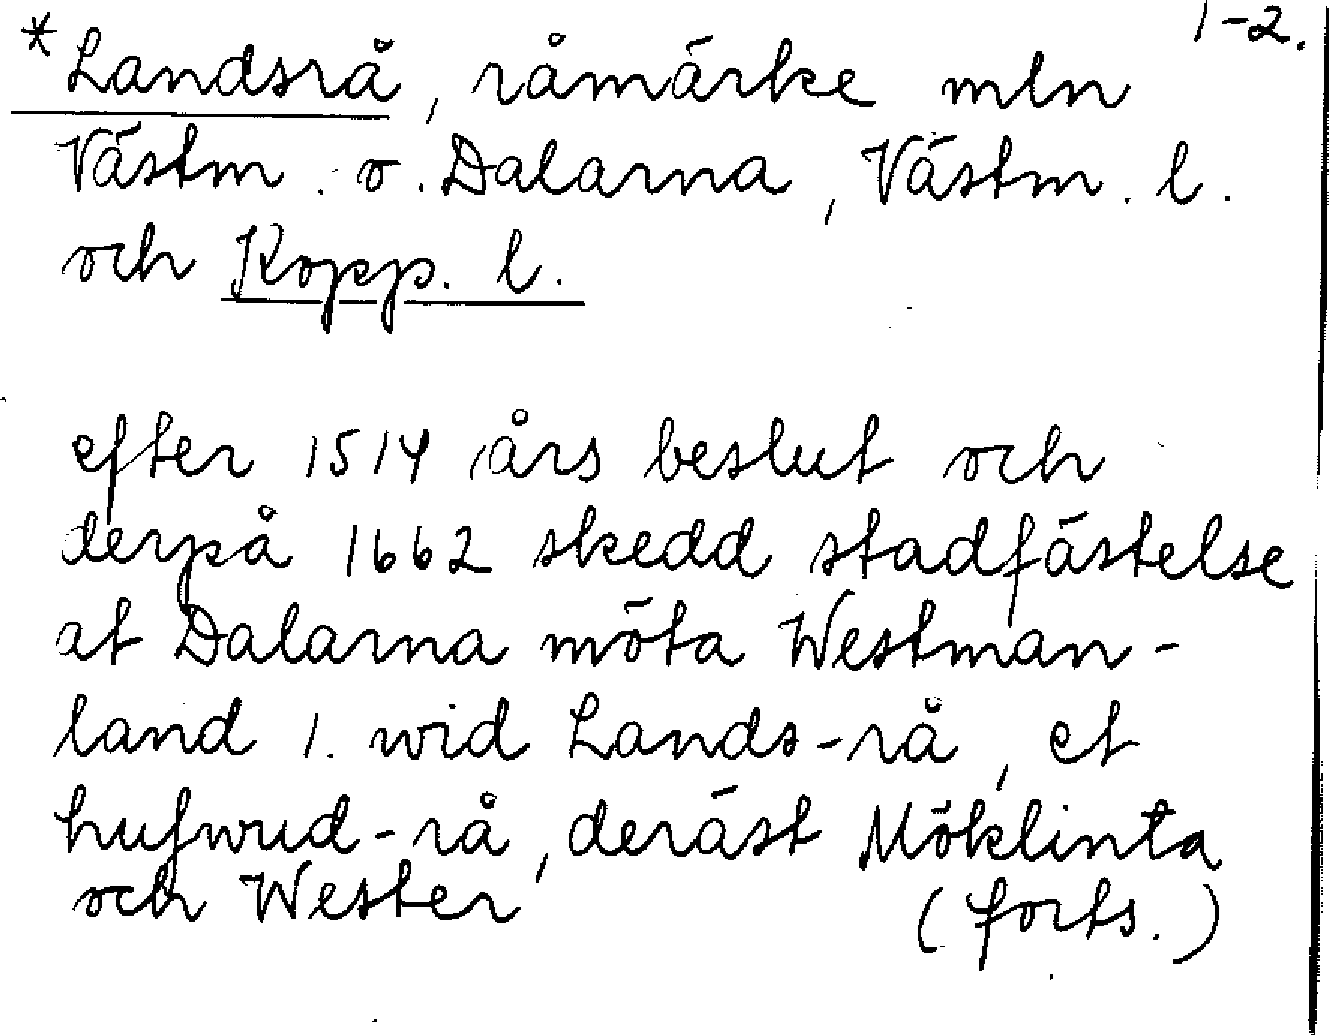 1-2.
*Landsrå, råmärke mln
Västm. o. Dalarna, Västm. l.
och Kopp. l.
efter 1514 års beslut och
derpå 1662 skedd stadfästelse
at Dalarna möta Westman-
land 1. wid Lands-rå, et
hufwud-rå, deräst Möklinta
och Wester
(forts.)